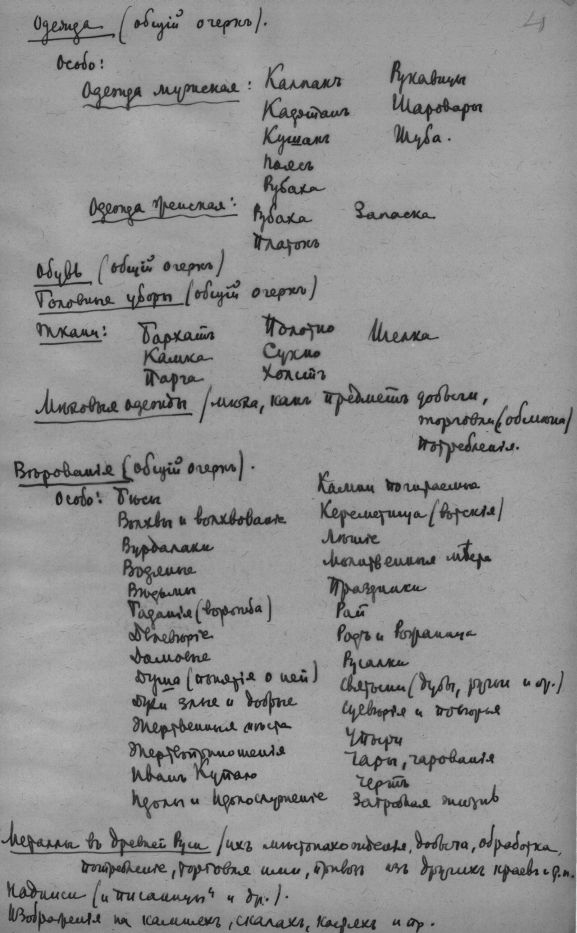 Одежда (общій очеркъ).
Особо:
Одежда мужская: Калпакъ Рукавицы
Кафтанъ Шаровары
Кушакъ Шуба.
Поясъ
Рубаха
Одежда женская: Рубаха Запаска
Платокъ
Обувь (общій очеркъ)
Головные уборы (общій очеркъ)
Ткани: Бархатъ Полотно Шелка
Камка Сукно
Парча Холстъ
Мѣховыя одежды (мѣха, какъ предметъ добычи,
торговли (обмѣна)
потребленія.
Вѣрованія (общій очеркъ).
Особо: Бѣсы Камни почитаемые
Волхвы и волхвованіе Кереметища (вотскія)
Вурдалаки Лѣшіе
Водяные Молитвенныя мѣста
Вѣдьмы Праздники
Гаданія (ворожба) Рай
Двоевѣріе Родъ и Рожаница
Домовые Русалки
Душа (понятія о ней) Святыни (дубы, ручьи и др.)
Духи злые и добрые Суевѣрія и повѣрья
Жертвенныя мѣста Упыри
Жертвоприношенія Чары, чарованія
Иванъ Купало Чертъ
Идолы и идолослуженіе Загробная жизнь
Металлы въ древней Руси (ихъ мѣстонахожденія, добыча, обработка,
потребленіе, торговля ими, привозъ изъ другихъ краевъ и т.п.
Надписи (и "писаницы" и др.).
Изображенія на камняхъ, скалахъ, костяхъ и пр.